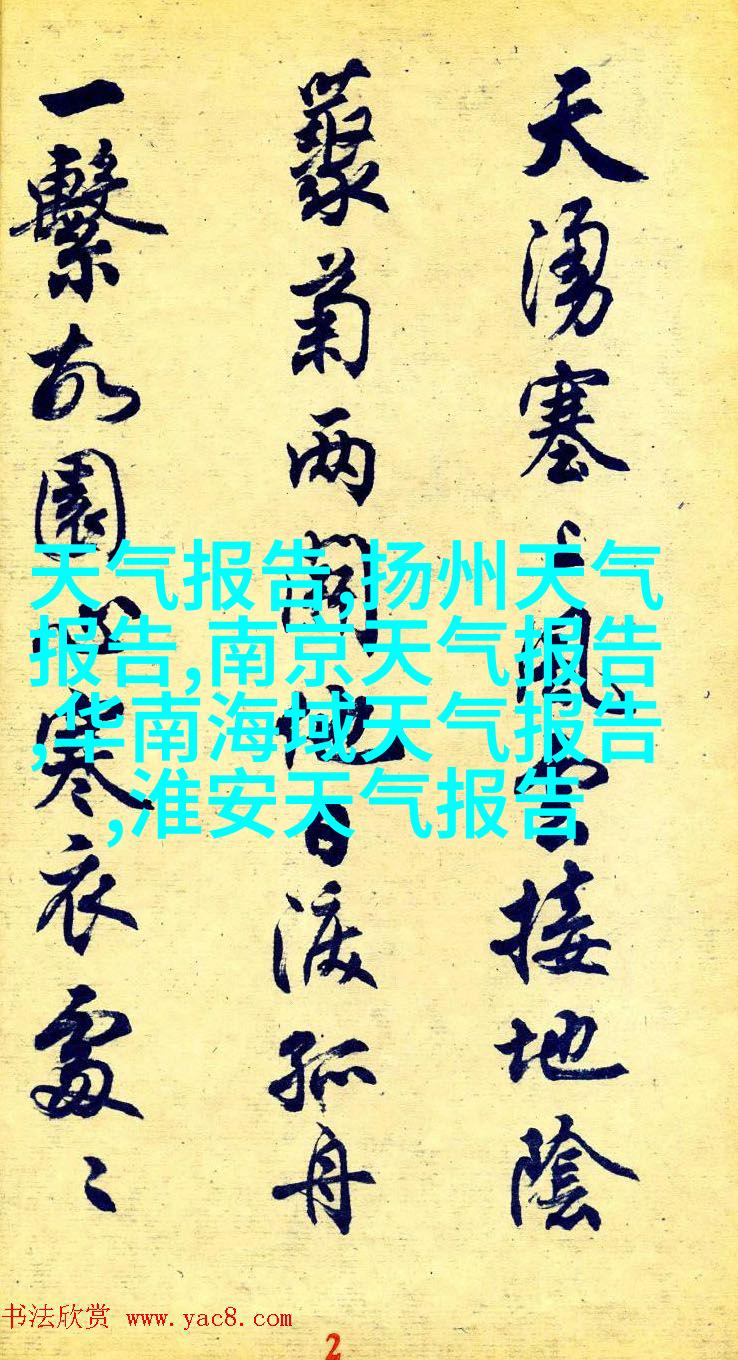 天湧塞上風雲接地陰
藂菊两開他日淚孤舟
一繫故園心寒衣處〻
天气报告,扬州天气
报告,南京天气报告
,华南海域天气报告
,淮安天气报告
书法欣赏 www.yac8.com
2